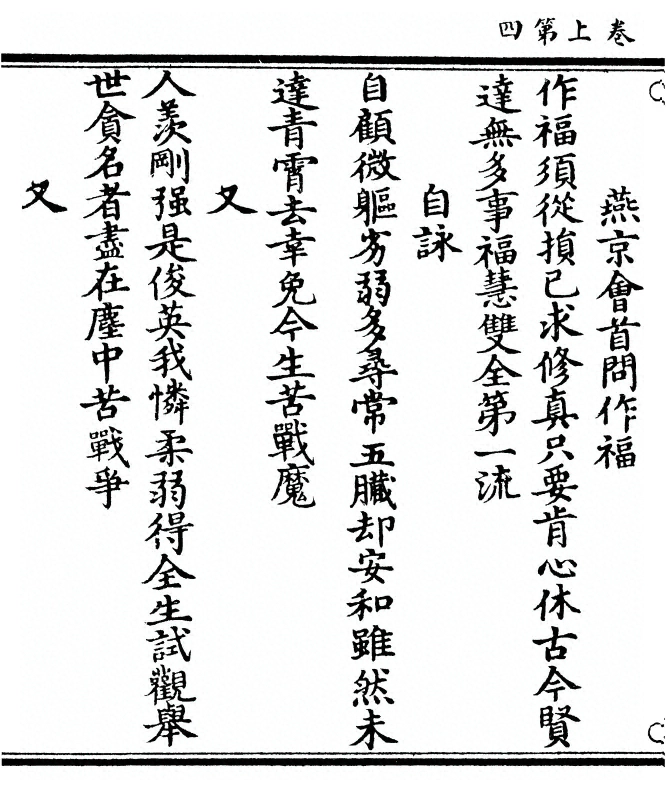 卷上第四
燕京會首問作福
作福須從損己求修真只要肯心休古今賢
達無多事福慧雙全第一流
自詠
自顧微軀劣弱多尋常五臟却安和雖然未
達青霄去幸免今生苦戰魔
又
人羨剛强是俊英我憐柔弱得全生試觀舉
世貪名者盡在塵中苦戰爭
又